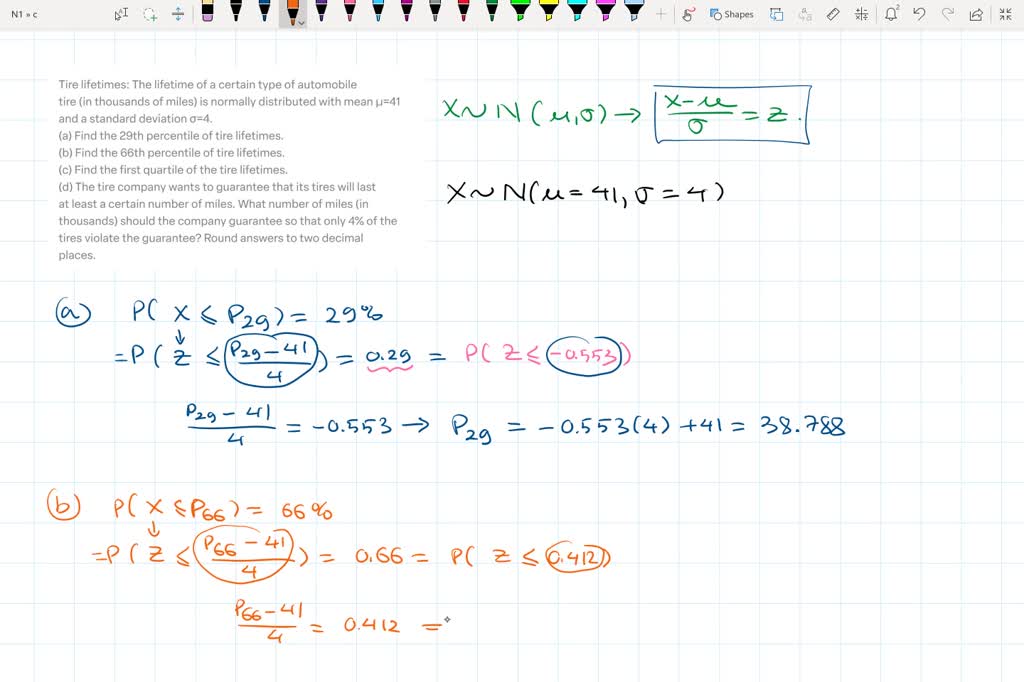 N1 » c
Shapes
Tire lifetimes: The lifetime of a certain type of automobile
tire (in thousands of miles) is normally distributed with mean μ=41
and a standard deviation σ=4.
(a) Find the 29th percentile of tire lifetimes.
(b) Find the 66th percentile of tire lifetimes.
(c) Find the first quartile of the tire lifetimes.
(d) The tire company wants to guarantee that its tires will last
at least a certain number of miles. What number of miles (in
thousands) should the company guarantee so that only 4% of the
tires violate the guarantee? Round answers to two decimal
places.
X~N(μ,σ) → (x-μ)/σ = z.
X~N(μ=41, σ=4)
(a) P(X ≤ P29) = 29%
↓
=P(Z ≤ (P29-41)/4) = 0.29 = P(Z ≤ -0.553)
(P29-41)/4 = -0.553 → P29 = -0.553(4)+41 = 38.788
(b) P(X ≤ P66) = 66%
↓
=P(Z ≤ (P66-41)/4) = 0.66 = P(Z ≤ 0.412)
(P66-41)/4 = 0.412 =